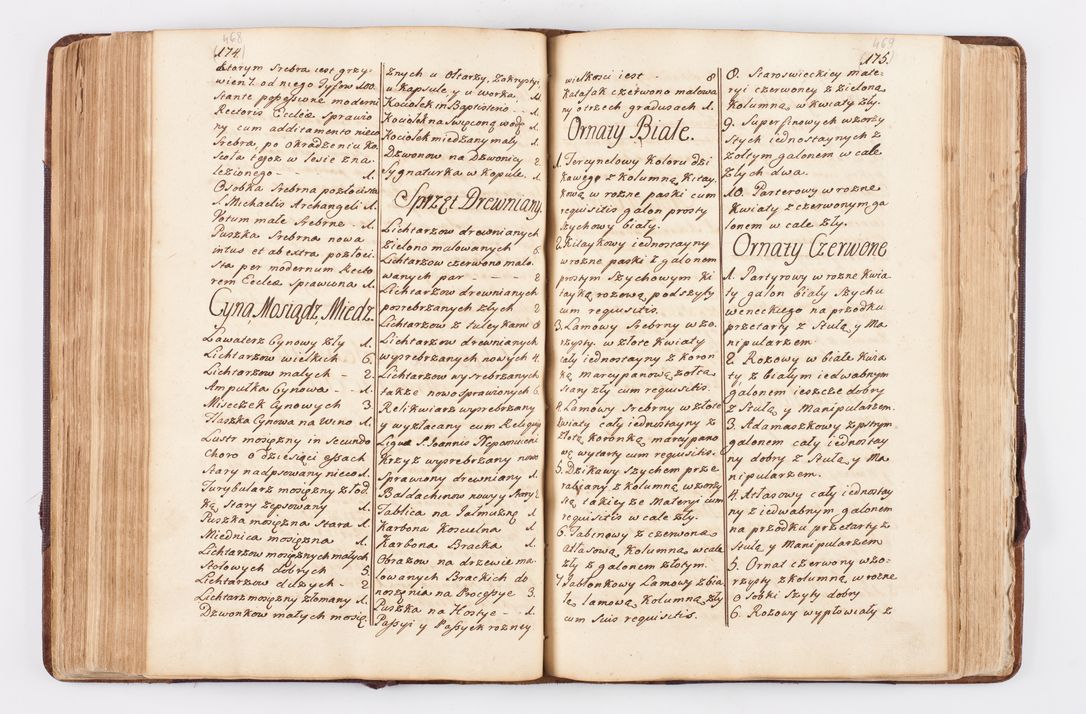 468
(174)
ktorym Srebra iest grzy-
wien 7. od niego Tysow 100.
Rectoris Eccleæ Sprawio
ny cum additamento nieco
Srebra, po okradzeniu Ko
scoła tegoz w lesie zna
lezionego - 1.
Osobka Srebrna pozłocista
S. Michaelis Archangeli 1.
Votum małe Srebrne - 1.
Puszka Srebrna nowa
intus et ab extra pozłoci
sta per modernum Recto
rem Eccleæ Sprawiona 1.
Cyna, Mosiądz, Miedz.
Lawaterz Cynowy zły 1.
Lichtarzow wielkich 6.
Lichtarzow małych - 2.
Ampułka Cynowa - 1.
Miseczek Cynowych 3
Flaszka Cynowa na wino 1.
Lustr mosięzny in secundo
Choro o dziesiąci
Stary nadpsowany nieco 1.
Turybularz mosięzny z łod
ką Stary zepsowany 1.
Puszka mosięzna Stara 1.
Miednica mosięzna 1.
Lichtarzow mosięznych małych
Stołowych dobrych 5
Lichtarzow duzych - 2
Lichtarz mosięzny złomany 1.
Dzwonkow małych mosię
znych u Ołtarzy, Zakrystyi
u Kapsule, y u worka
Kociołek in Baptisterio 1.
Kociołek na Swięconą wodę 1.
Kociołek miedziany mały 1.
Dzwonow na Dzwonicy 2
Sygnaturka w Kopule 1.
Sprzęt Drewniany.
Lichtarzow drewnianych
zielono malowanych 6
Lichtarzow czerwono malo-
wanych par - - 2
Lichtarzow drewnianych
posrebrzanych złych 2
Lichtarzow z tuleykami 8
Lichtarzow drewnianych
wysrebrzanych nowych 4.
Lichtarzow wysrebrzanych
także nowo sprawionych 6.
Relikwiarz wysrebrzany
y wyzłacany cum Reliquiis
S. Joannis Nepomuceni
Krzyz wysrebrzany nowo
Sprawiony drewniany 1.
Baldachinow nowy y Stary 2
Tablica na Jałmuznę 1.
Karbona Kosculna 1.
Karbona Bracka 1.
Obrazow na drzewie ma
lowanych Brackich do
noszenia na Processye 3.
Puszka na Hostye - 1.
Passyi y Passyek rozney
469
(175.)
wielkosci iest - 8
Katafalk czerwono malowa
ny o trzech gradusach 1.
Ornaty Białe.
1. Tercynelowy Koloru dzi
kawego z Kolumną Kitay
kową w rozne paski cum
requisitis galon prosty
szychowy biały.
2. Kitaykowy iednostayny
w rozne paski z galonem
prostym Szychowym Ki
tayką rozową podszyty
cum requisitis.
3. Lamowy Srebrny wzo
rzysty w złote Kwiaty
cały iednostayny z Koron
ką marcypanową zołtą
stary zły cum requisitis.
4. Lamowy Srebrny w złote
Kwiaty cały iednostayny z
złotą Koronką marcypano
wą wytarty cum requisitis.
5. Dzikawy Szychem prze
rabiany z Kolumną wzorzy
stą takieyze Materyi cum
requisitis w cale zły.
6. Tabinowy z czerwoną
Atłasową Kolumną w cale
zły z galonem złotym.
7. Jabłonkowy Lamowy z bia
łą lamową Kolumną zły
cum suis requisitis.
8. Staroswieckiey mate-
ryi czerwoney z zieloną
Kolumną w Kwiaty zły.
9. Superfinowych wzorzy
stych iednostaynych z
zołtym galonem w cale
złych dwa.
10. Parterowy w rozne
Kwiaty z czerwonym ga
lonem w cale zły.
Ornaty Czerwone
1. Partyrowy w rozne Kwia
ty galon biały Szychu
weneckiego na przodku
przetarty z Stułą y Ma
nipularzem.
2. Rozowy w białe Kwia
ty z białym iedwabnym
galonem ieszcze dobry
z Stułą y Manipularzem.
3. Adamaszkowy z pstrym
galonem cały iednostay
ny dobry z Stułą y Ma
nipularzem.
4. Atłasowy cały iednostay
ny z iedwabnym galonem
na przodku przetarty z
Stułą y Manipularzem
5. Ornat czerwony wzo-
rzysty z Kolumną w rozne
osobki Szyty dobry
6. Rozowy wypłowiały z